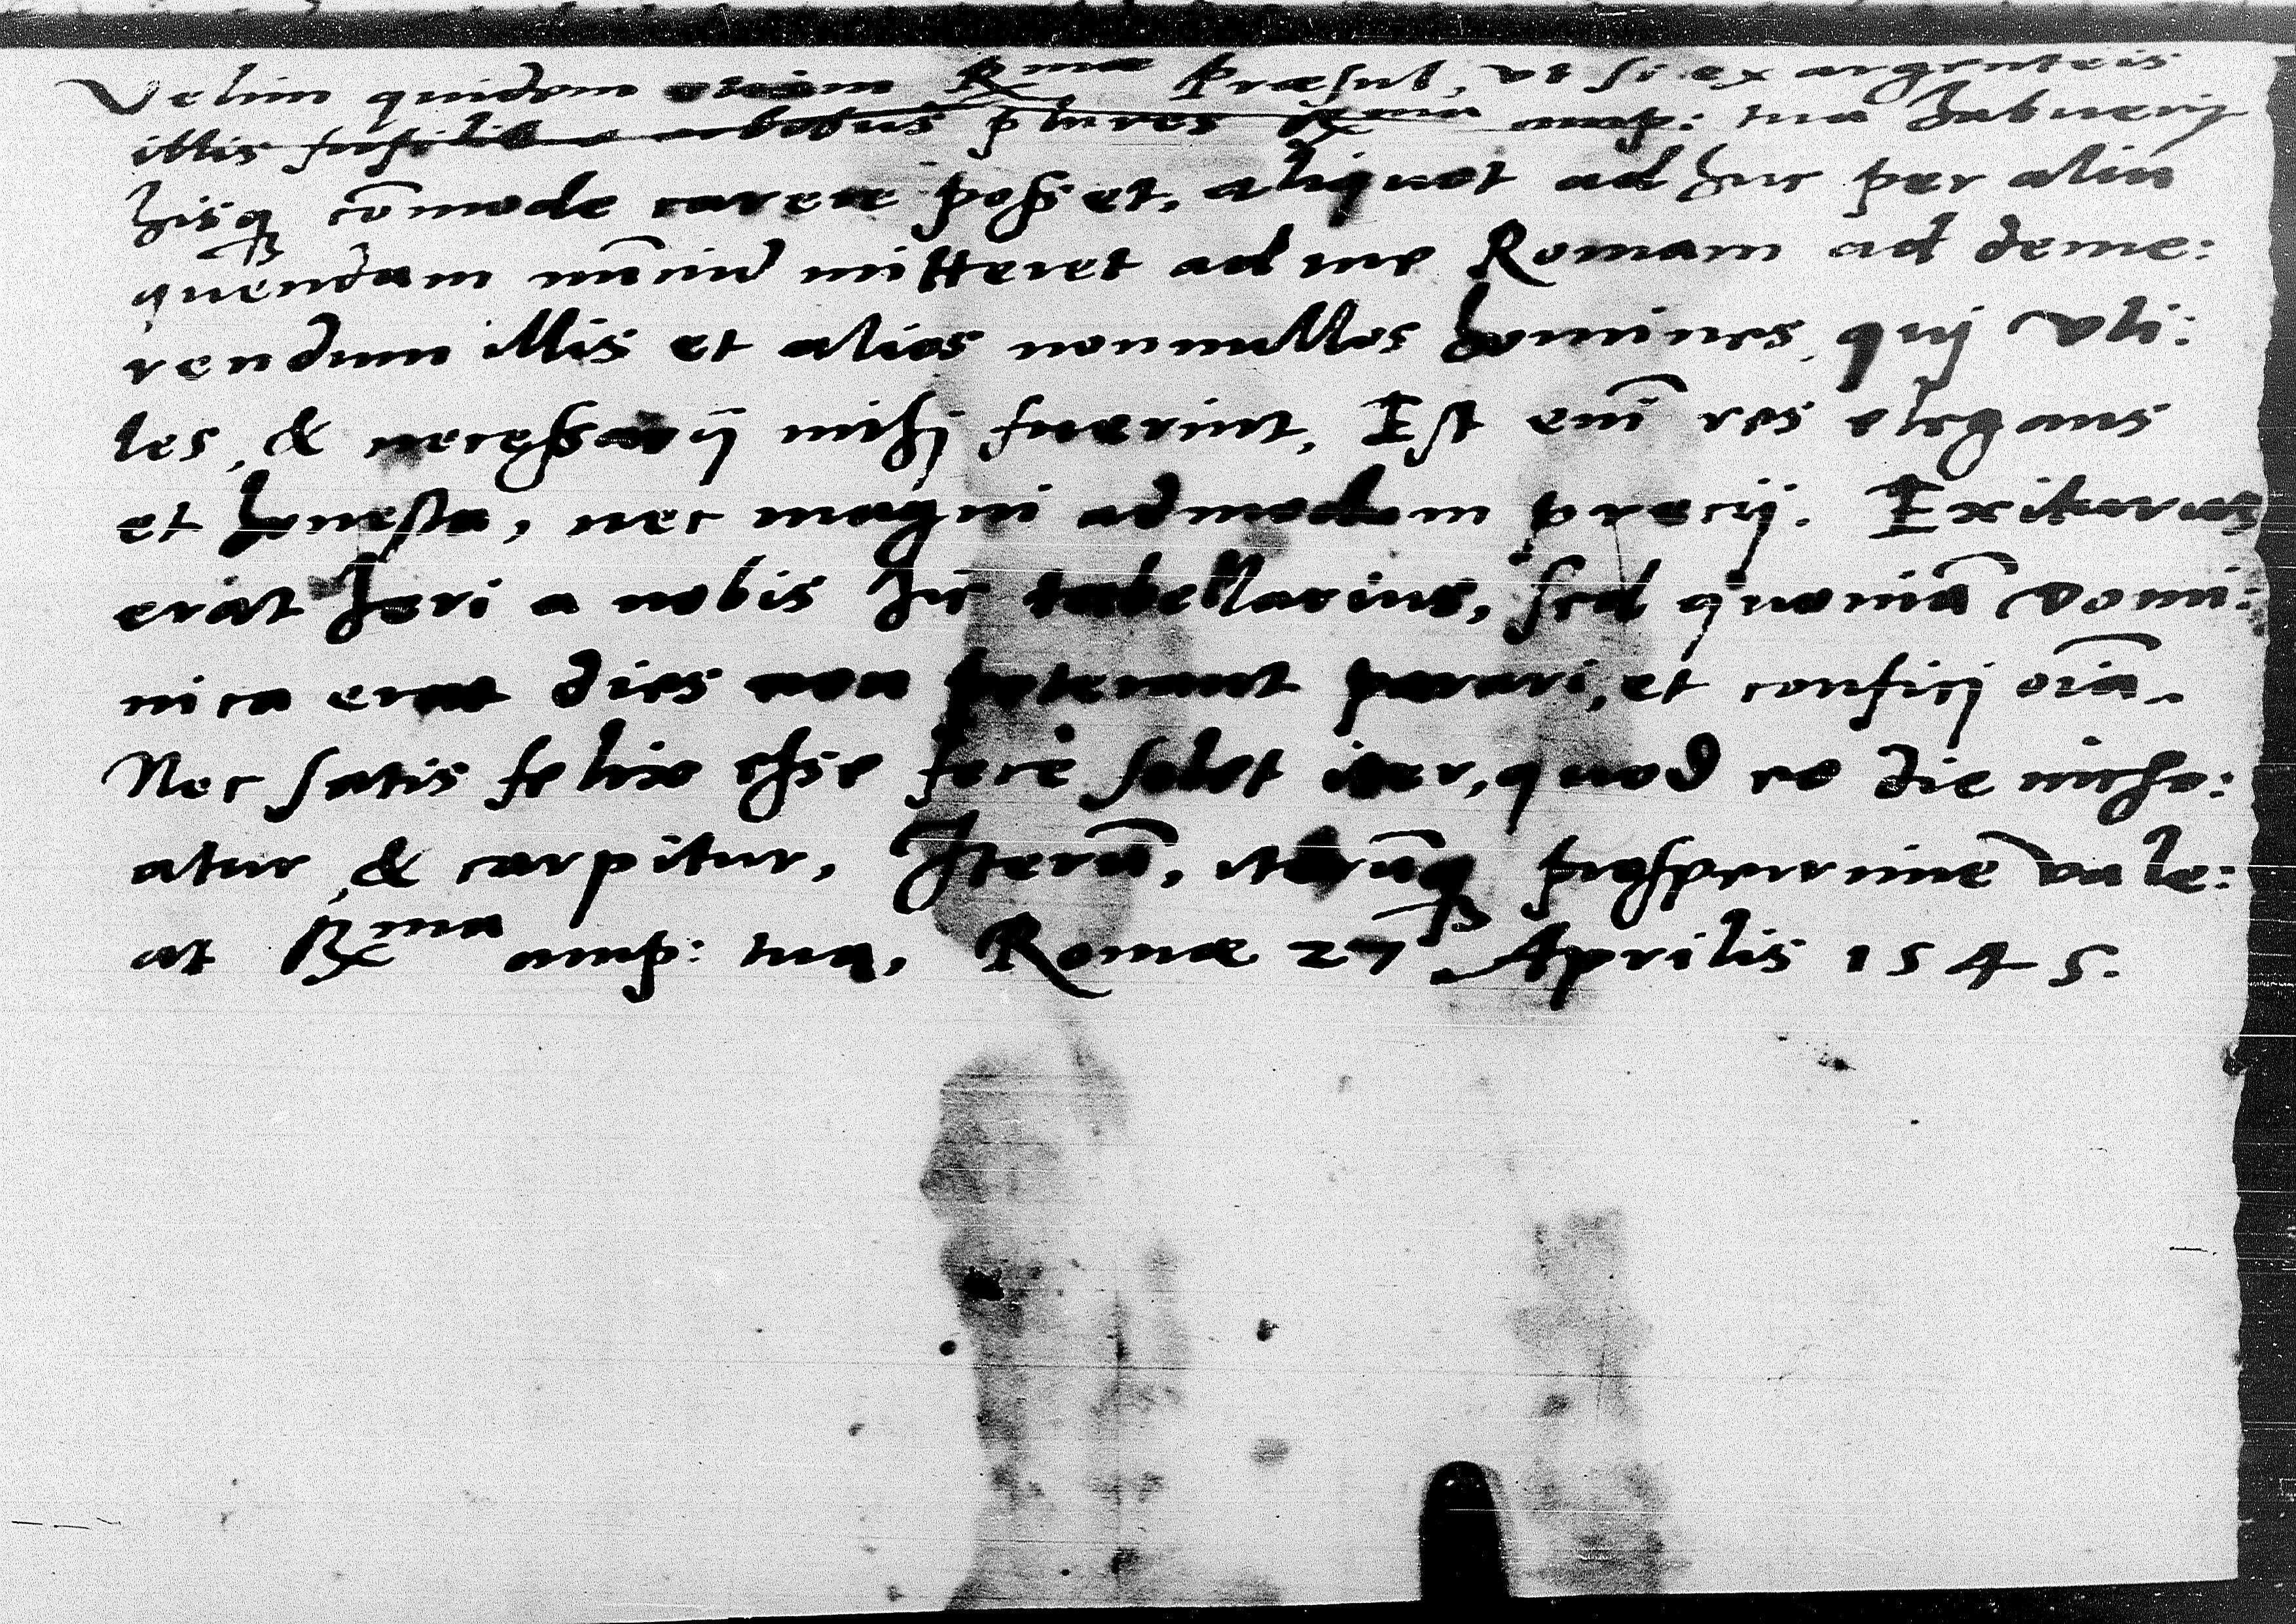 Velim quidem etiam Rmæ Præsul, vt si ex argenteis
illis fusilib orbibus plures Rma amp: tua habuerit
hisq cōmode carere posset, aliquot adhuc per aliū
quendam nūciū mitteret ad me Romam ad deme:
rendum illis et alios nonnullos homines, quj vti:
les, & necessarij mihj fuerint, Est enī res elegans
et honesta, nec magni admodum precij. Exiturus
erat heri a nobis hic tabellarius, sed quoniā Domi:
nica erat dies non poterant parari, et confici oīa.
Nec satis felix esse fere solet iter, quod eo die incho:
atur, & carpitur, Iterū, iterūq prosperrime vale:
at Rma amp: tua, Romæ 27 Aprilis 1545.